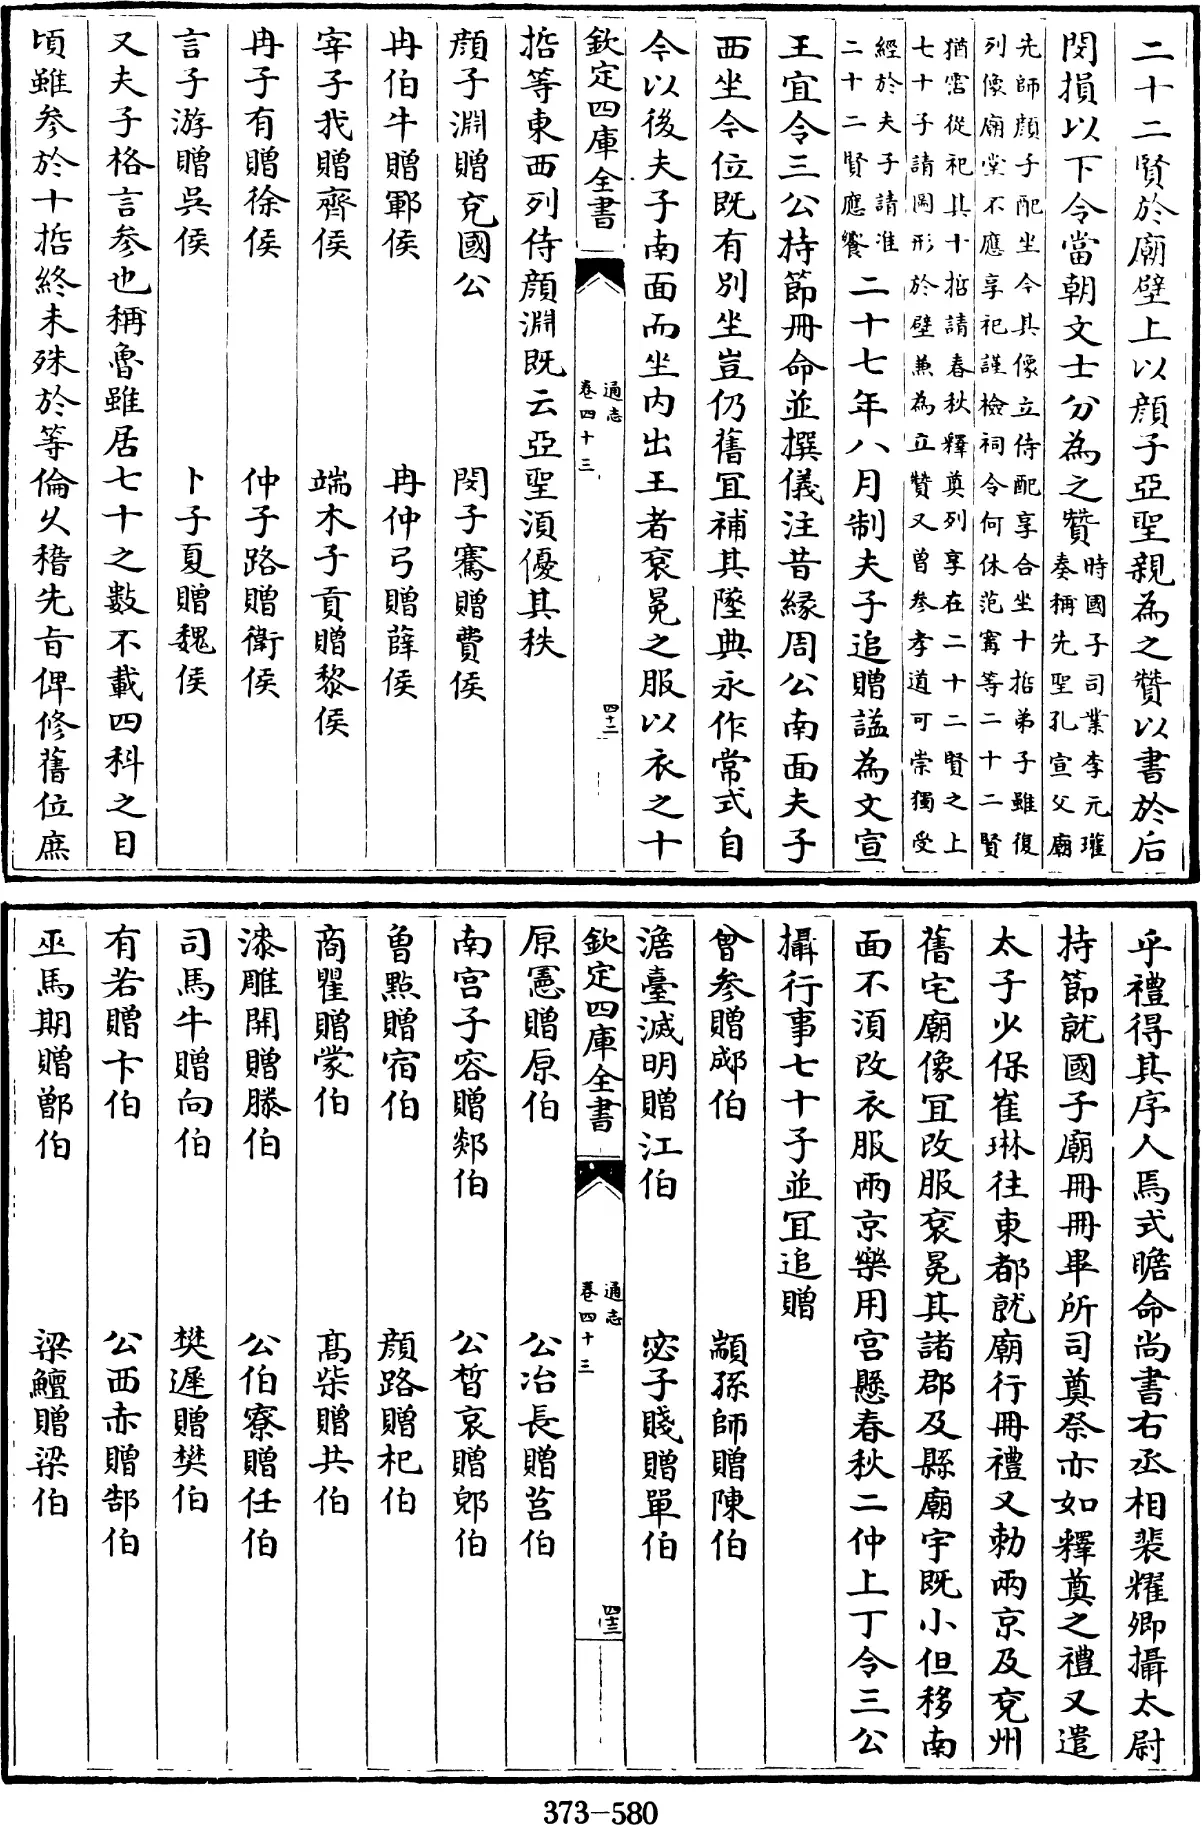 二十二賢於廟壁上以顔子亞聖親為之贊以書於石
閔損以下令當朝文士分為之贊時國子司業李元瓘
奏稱先聖孔宣父廟
先師顔子配坐今其像立侍配享合坐十哲弟子雖復
列像廟堂不應享祀謹檢祠令何休范寗等二十二賢
猶霑從祀其十哲請春秋釋奠列享在二十二賢之上
七十子請圖形於壁兼為立贊又曽參孝道可崇獨受
經於夫子請准
二十二賢應饗二十七年八月制夫子追贈諡為文宣
王宜令三公持節冊命並撰儀注昔縁周公南面夫子
西坐今位既有別坐豈仍舊冝補其墜典永作常式自
今以後夫子南面而坐内出王者衮冕之服以衣之十
欽定四庫全書
通志
卷四十三
四十二
哲等東西列侍顔淵既云亞聖湏優其秩
顔子淵贈兖國公 閔子騫贈費侯
冉伯牛贈鄆侯 冉仲弓贈薛侯
宰子我贈齊侯 端木子貢贈黎侯
冉子有贈徐侯 仲子路贈衛侯
言子游贈吳侯 卜子夏贈魏侯
又夫子格言參也稱魯雖居七十之數不載四科之目
頃雖參於十哲終未殊於等倫乆稽先旨俾修舊位庶
乎禮得其序人焉式瞻命尚書右丞相裴耀卿攝太尉
持節就國子廟冊冊畢所司奠祭亦如釋奠之禮又遣
太子少保崔琳往東都就廟行冊禮又勅兩京及兖州
舊宅廟像冝改服衮冕其諸郡及縣廟宇既小但移南
面不湏改衣服兩京樂用宫懸春秋二仲上丁令三公
攝行事七十子並冝追贈
曾參贈郕伯 顓孫師贈陳伯
澹臺滅明贈江伯 宓子賤贈單伯
欽定四庫全書
通志
卷四十三
四十三
原憲贈原伯 公冶長贈莒伯
南宫子容贈郯伯 公晳哀贈郳伯
曾㸃贈宿伯 顔路贈杞伯
商瞿贈蒙伯 髙柴贈共伯
漆雕開贈滕伯 公伯寮贈任伯
司馬牛贈向伯 樊遲贈樊伯
有若贈卞伯 公西赤贈郜伯
巫馬期贈鄫伯 梁鱣贈梁伯
373-580